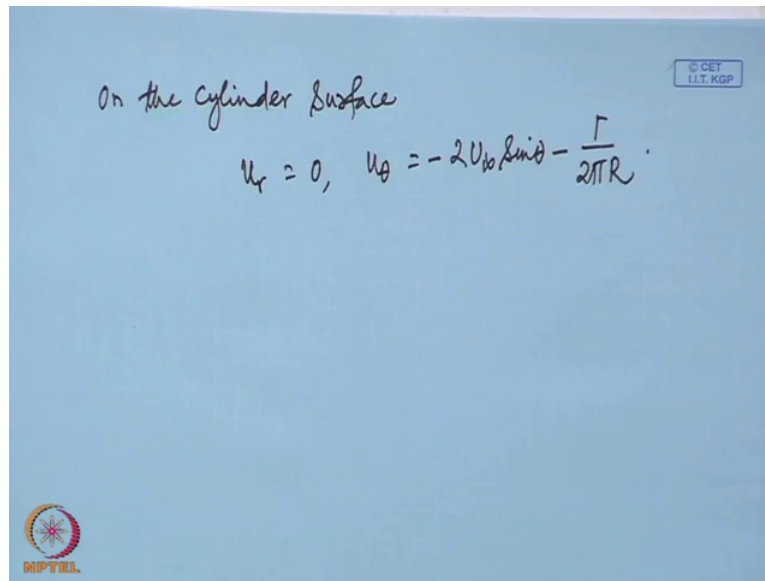 © CET
I.I.T. KGP
On the Cylinder Surface
u_r = 0, u_θ = -2U_∞ Sinθ - Γ/2πR.
NPTEL